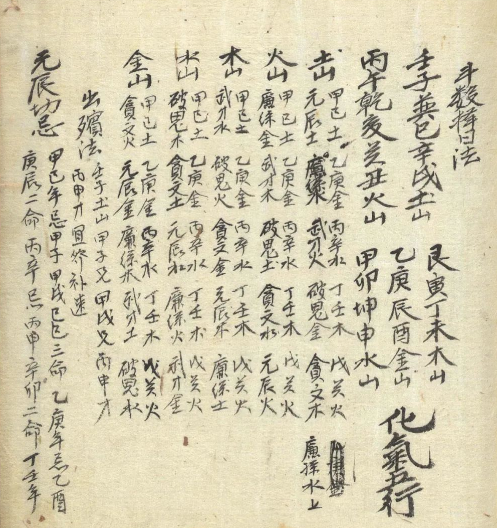 斗數擇日法
壬子巽巳辛戌土山
艮寅丁未木山
乙庚辰酉金山
丙午乾亥癸丑火山
甲卯坤申水山
化氣五行
土山 甲己土 乙庚金 丙辛水 丁壬木 戊癸火
元辰土 武才火 破鬼金 貪文木 廉孫水土
火山 甲己土 乙庚金 丙辛水 丁壬木 戊癸火
廉孫金 武才木 破鬼土 貪文水 元辰火
木山 甲己土 乙庚金 丙辛水 丁壬木 戊癸火
武才水 破鬼火 貪文金 元辰木 廉孫土
水山 甲己土 乙庚金 丙辛水 丁壬木 戊癸火
破鬼木 貪文土 元辰水 廉孫火 武才金
金山 甲己土 乙庚金 丙辛水 丁壬木 戊癸火
貪文火 元辰金 廉孫木 武才土 破鬼水
出殯法 壬子土山 甲子兄 甲戌兄 丙申才
丙甲才 宜終補
元辰切忌 甲己年忌甲子 甲戌己巳三命 乙庚年忌乙酉
庚辰二命 丙辛忌丙申辛卯二命 丁壬年